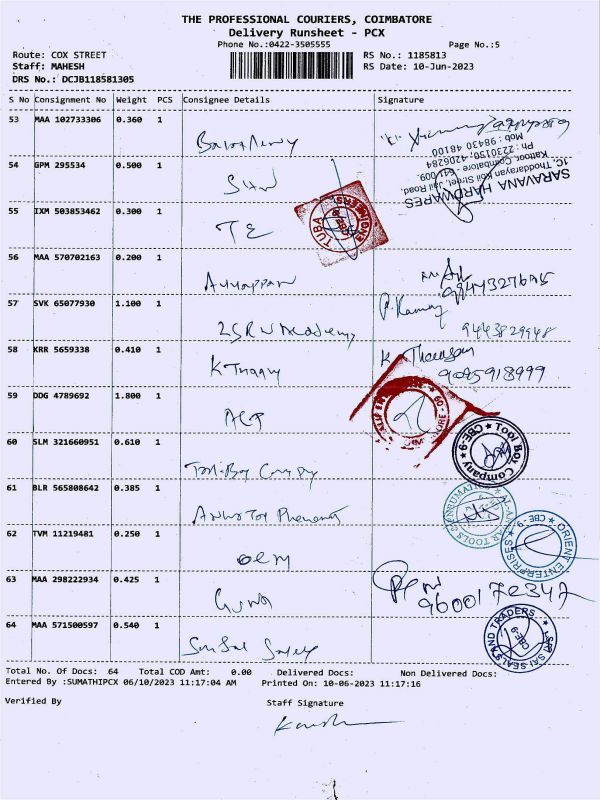 THE PROFESSIONAL COURIERS, COIMBATORE
Delivery Runsheet - PCX
Phone No.:0422-3505555 Page No.:5
Route: COX STREET RS No.: 1185813
Staff: MAHESH RS Date: 10-Jun-2023
DRS No.: DCJB118581305
S No Consignment No Weight PCS Consignee Details Signature
53 MAA 102733306 0.360 1
54 GPM 295534 0.500 1
SARAVANA HARDWARES
1C, Thoddarayan Koil Street, Jail Road,
Kattoor, Coimbatore - 641 009.
Ph : 2230150, 4206284
Mob : 98430 48100
55 IXM 503853462 0.300 1
TE
TUBA ENGINEERS
CBE-9
56 MAA 570702163 0.200 1
Ayyappan
57 SVK 65077930 1.100 1
Academy
9443829948
58 KRR 5659338 0.410 1
9095918999
59 DDG 4789692 1.800 1
60 SLM 321660951 0.610 1
Tool Boy Company
Tool Boy Company
CBE-9
61 BLR 565808642 0.385 1
62 TVM 11219481 0.250 1
OEM
ORIENT ENTERPRISES
CBE - 9
63 MAA 298222934 0.425 1
Guna
9600172347
64 MAA 571500597 0.540 1
SRI SAI SEALS AND TRADERS
CBE-9
Total No. Of Docs: 64 Total COD Amt: 0.00 Delivered Docs: Non Delivered Docs:
Entered By :SUMATHIPCX 06/10/2023 11:17:04 AM Printed On: 10-06-2023 11:17:16
Verified By Staff Signature